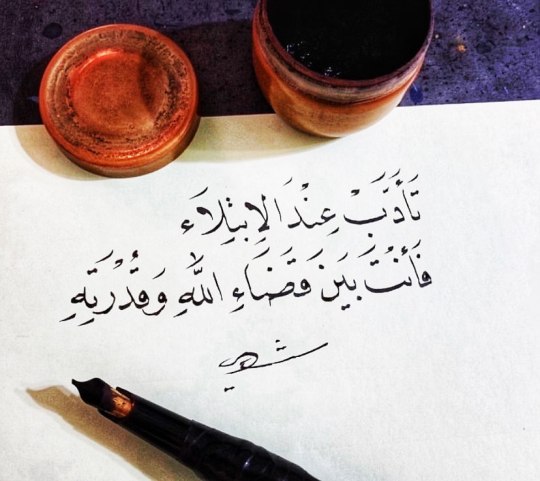 تَأَدَّبْ عِنْدَ الِابْتِلَاءِ
فَأَنْتَ بَيْنَ قَضَاءِ اللّٰهِ وَقُدْرَتِهِ